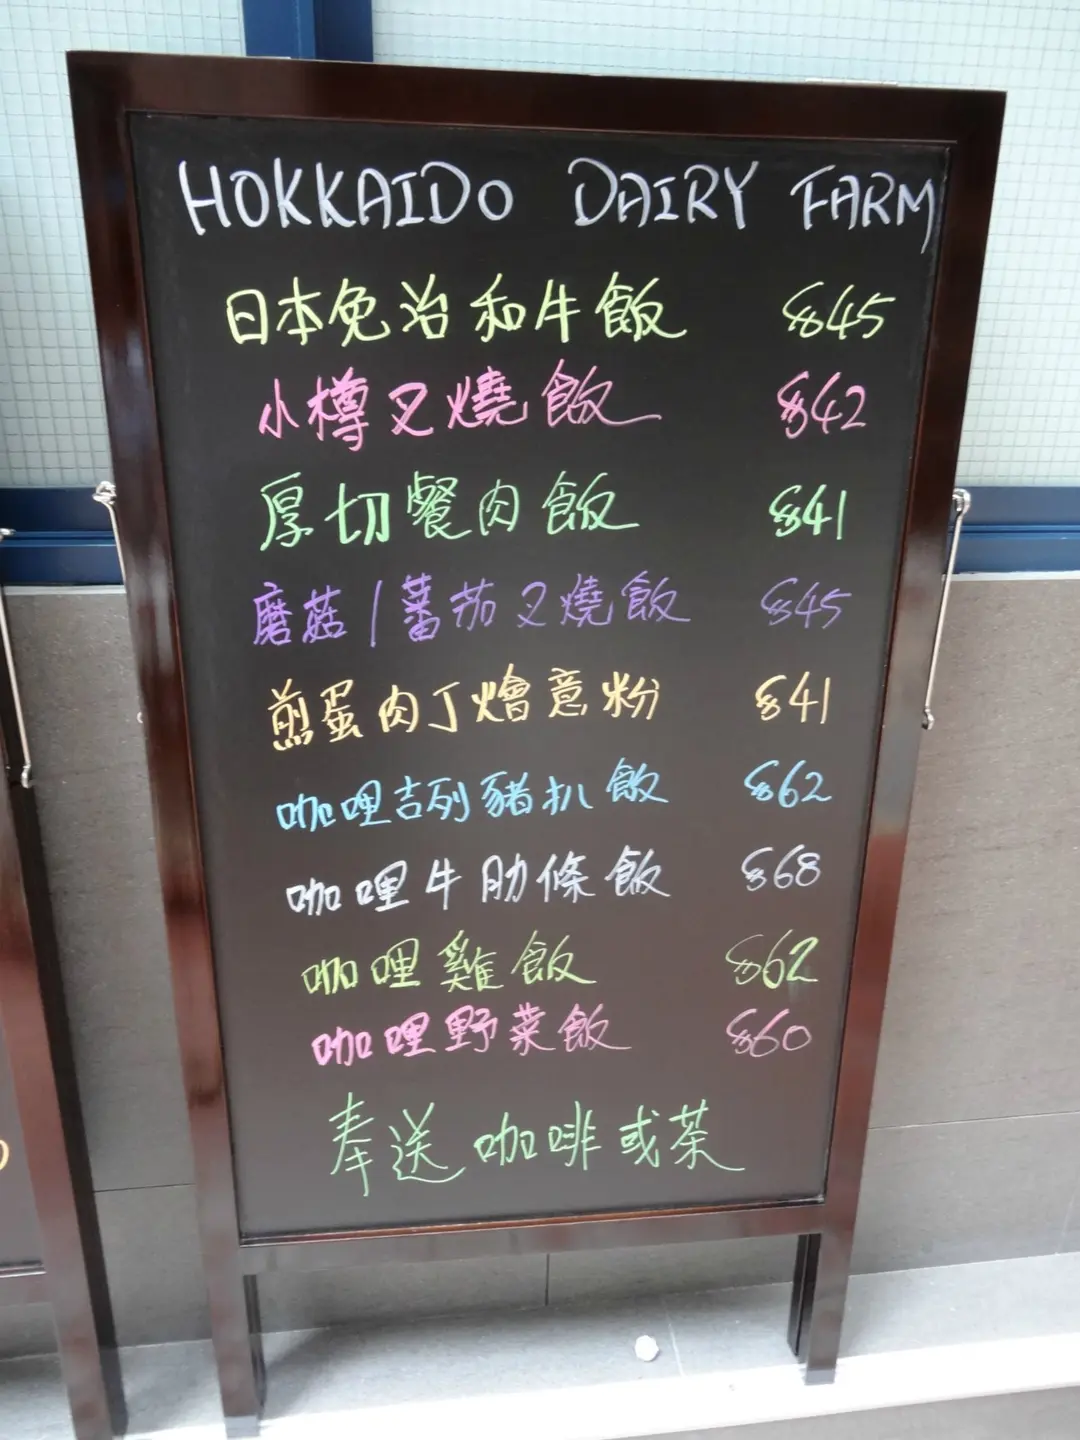 HOKKAIDO DAIRY FARM
日本免治和牛飯 $45
小樽叉燒飯 $42
厚切餐肉飯 $41
磨菇/蕃茄叉燒飯 $45
煎蛋肉丁燴意粉 $41
咖哩吉列豬扒飯 $62
咖哩牛肋條飯 $68
咖哩雞飯 $62
咖哩野菜飯 $60
奉送咖啡或茶